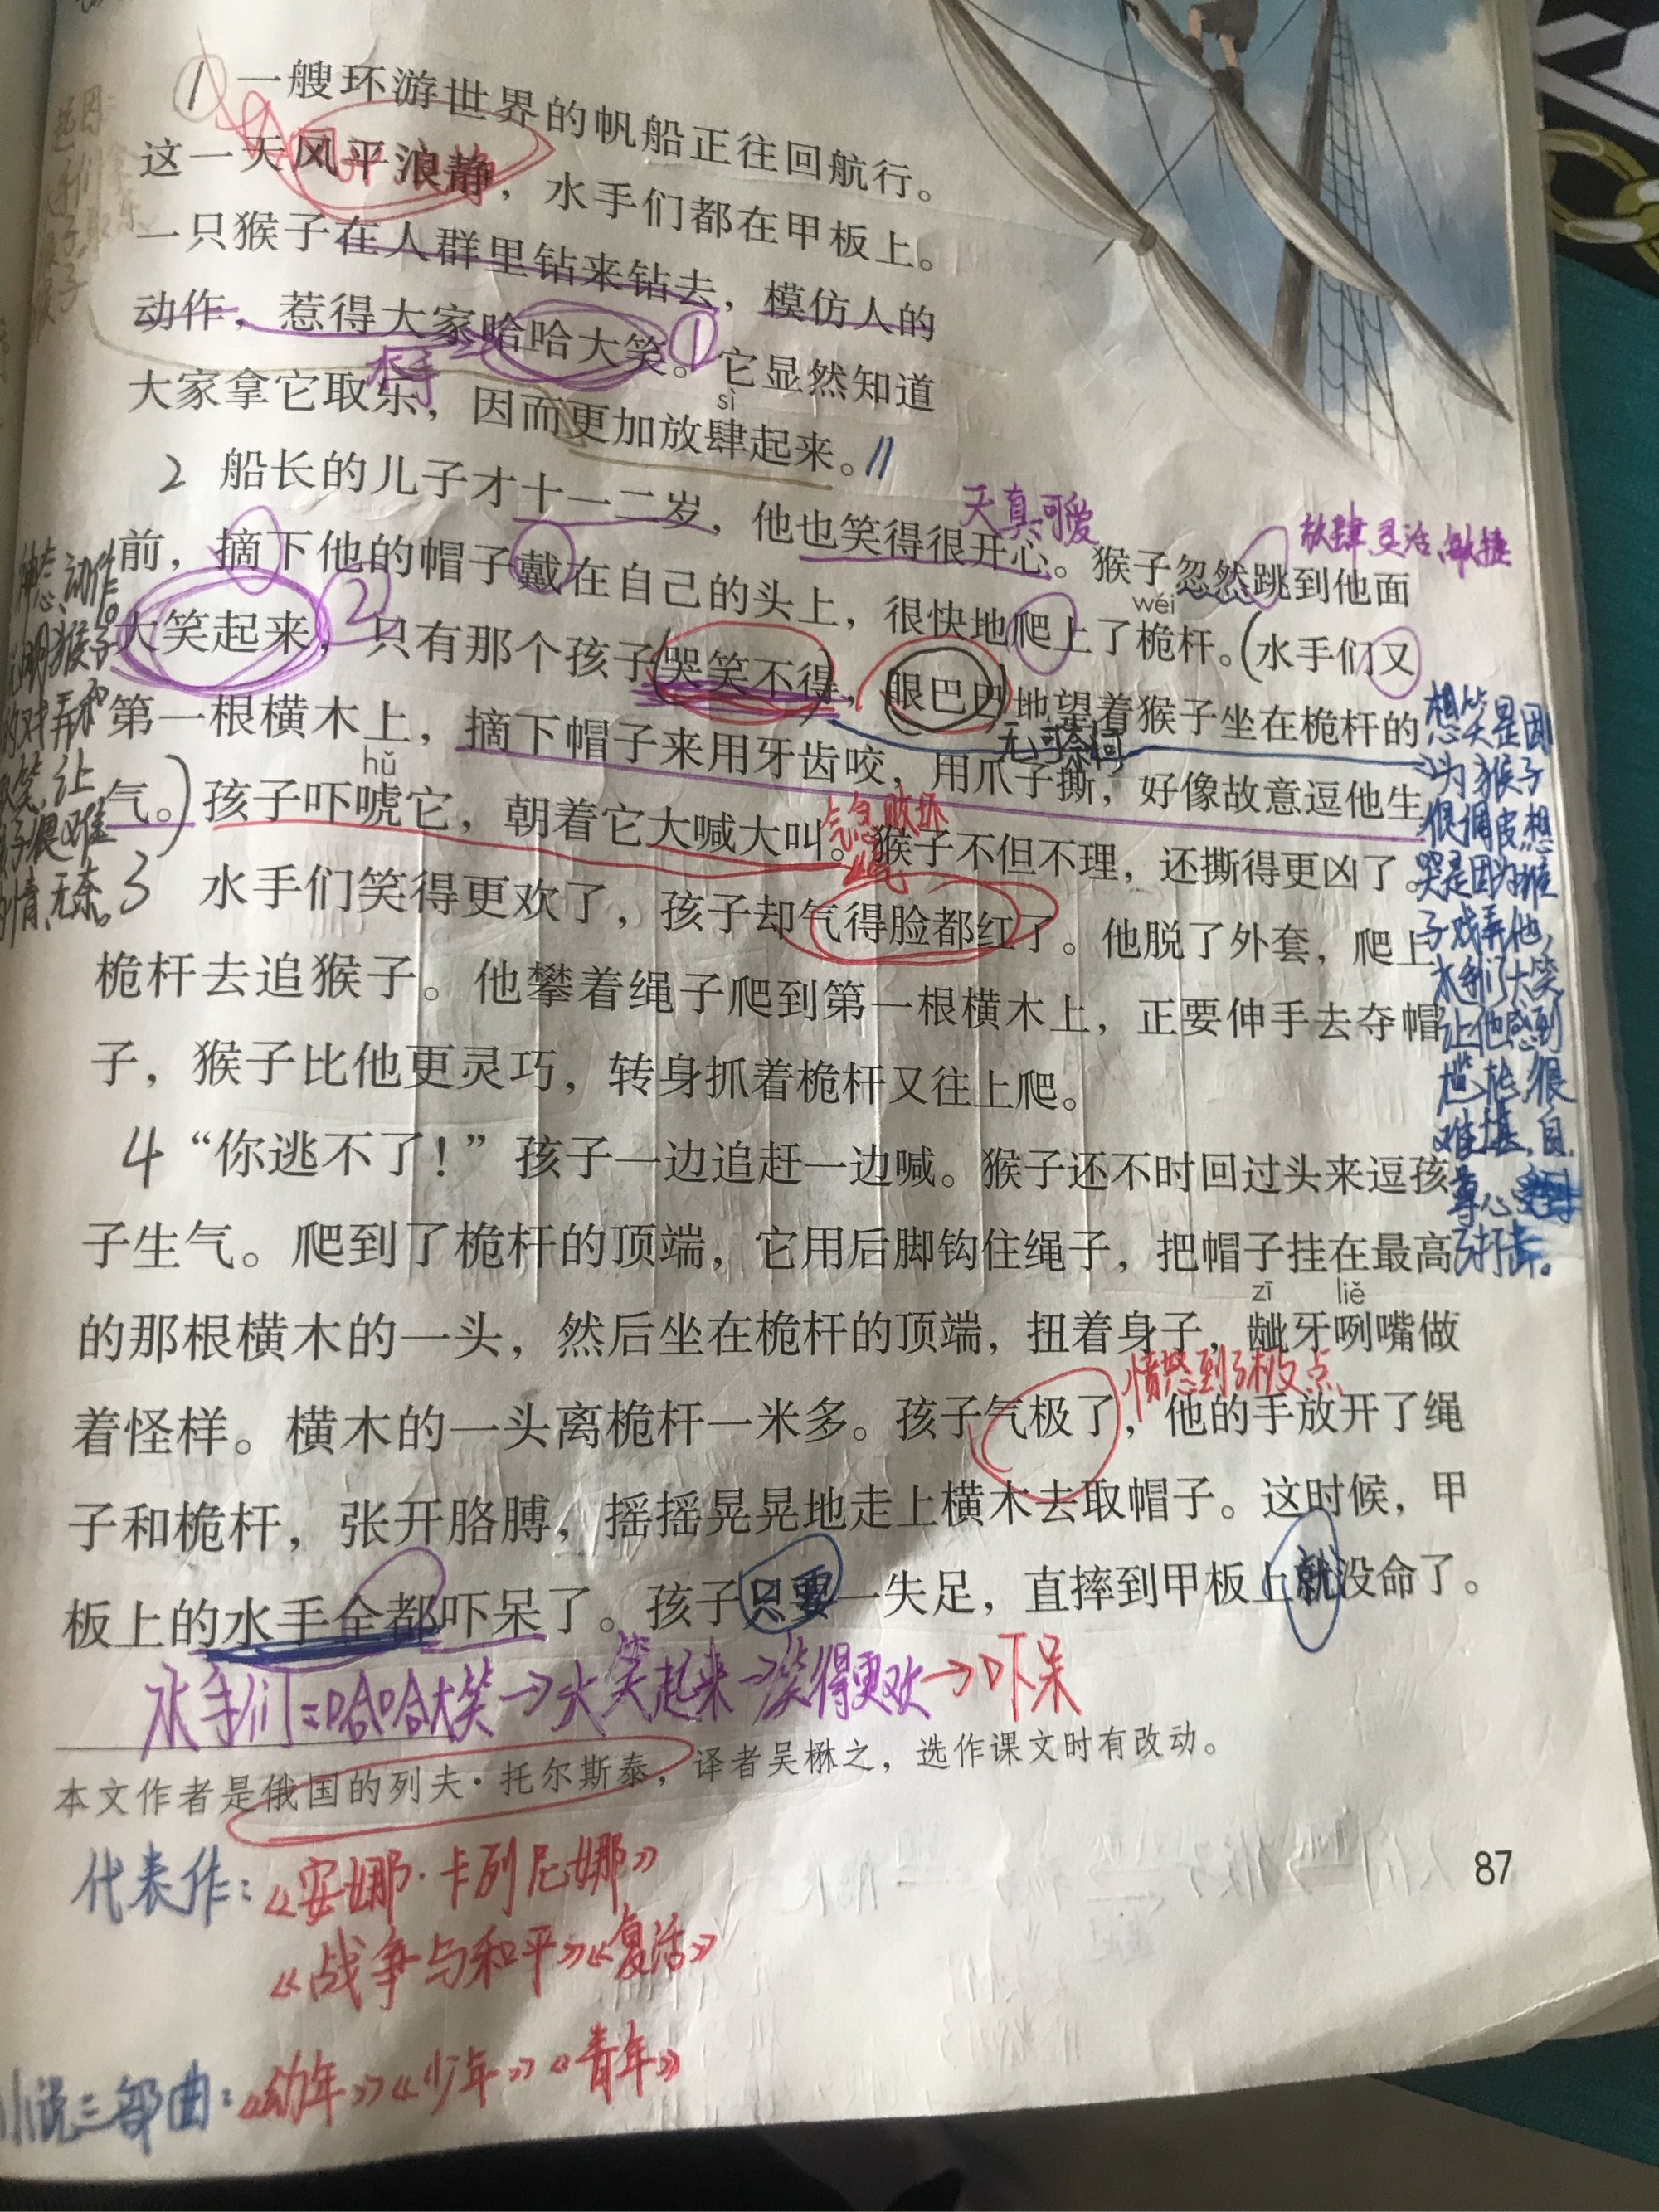 ① 一艘环游世界的帆船正往回航行。
这一天风平浪静，水手们都在甲板上。
一只猴子在人群里钻来钻去，模仿人的
动作，惹得大家哈哈大笑。①它显然知道
水手
大家拿它取乐，因而更加放肆起来。//
sì
2 船长的儿子才十一二岁，他也笑得很开心。猴子忽然跳到他面
天真可爱
放肆、灵活、敏捷
前，摘下他的帽子戴在自己的头上，很快地爬上了桅杆。(水手们又
wéi
大笑起来，②只有那个孩子哭笑不得，眼巴巴地望着猴子坐在桅杆的
无可奈何
第一根横木上，摘下帽子来用牙齿咬，用爪子撕，好像故意逗他生
hǔ
气。)孩子吓唬它，朝着它大喊大叫。猴子不但不理，还撕得更凶了。
气急败坏
3 水手们笑得更欢了，孩子却气得脸都红了。他脱了外套，爬上
桅杆去追猴子。他攀着绳子爬到第一根横木上，正要伸手去夺帽
子，猴子比他更灵巧，转身抓着桅杆又往上爬。
4 “你逃不了！”孩子一边追赶一边喊。猴子还不时回过头来逗孩
子生气。爬到了桅杆的顶端，它用后脚钩住绳子，把帽子挂在最高
zī liě
的那根横木的一头，然后坐在桅杆的顶端，扭着身子，龇牙咧嘴做
愤怒到了极点
着怪样。横木的一头离桅杆一米多。孩子气极了，他的手放开了绳
子和桅杆，张开胳膊，摇摇晃晃地走上横木去取帽子。这时候，甲
板上的水手全都吓呆了。孩子只要一失足，直摔到甲板上就没命了。
水手们：哈哈大笑→大笑起来→笑得更欢→吓呆
本文作者是俄国的列夫·托尔斯泰，译者吴楙之，选作课文时有改动。
代表作：《安娜·卡列尼娜》
《战争与和平》《复活》
小说三部曲：《幼年》《少年》《青年》
87
想笑是因
为猴子
很调皮想
哭是因为猴
子戏弄他，
水手们大笑
让他感到
尴尬，很
难堪，自
尊心受到
了打击。
神态、动作。
说明猴子
的戏弄和
取笑，让
孩子很难
为情、无奈。